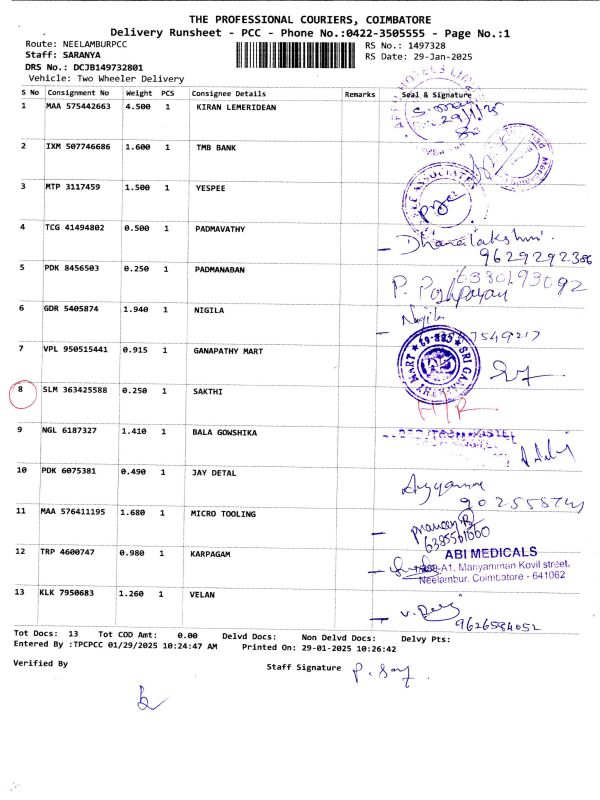 THE PROFESSIONAL COURIERS, COIMBATORE
Delivery Runsheet - PCC - Phone No.:0422-3505555 - Page No.:1
Route: NEELAMBURPCC
RS No.: 1497328
Staff: SARANYA
RS Date: 29-Jan-2025
DRS No.: DCJB149732801
Vehicle: Two Wheeler Delivery
S No Consignment No Weight PCS Consignee Details Remarks Seal & Signature
1 MAA 575442663 4.500 1 KIRAN LEMERIDEAN
29/1/25
2 IXM 507746686 1.600 1 TMB BANK
3 MTP 3117459 1.500 1 YESPEE
4 TCG 41494802 0.500 1 PADMAVATHY
Dhanalakshmi
9629292386
5 PDK 8456503 0.250 1 PADMANABAN
6380193092
P.
6 GDR 5405874 1.940 1 NIGILA
Nigila
7549217
7 VPL 950515441 0.915 1 GANAPATHY MART
SRI GANAPATHY MART
8 SLM 363425588 0.250 1 SAKTHI
9 NGL 6187327 1.410 1 BALA GOWSHIKA
10 PDK 6075381 0.490 1 JAY DETAL
11 MAA 576411195 1.680 1 MICRO TOOLING
12 TRP 4600747 0.980 1 KARPAGAM
ABI MEDICALS
Mariyamman Kovil street,
Neelambur, Coimbatore - 641062
13 KLK 7950683 1.260 1 VELAN
9626594052
Tot Docs: 13 Tot COD Amt: 0.00 Delvd Docs: Non Delvd Docs: Delvy Pts:
Entered By :TPCPCC 01/29/2025 10:24:47 AM Printed On: 29-01-2025 10:26:42
Verified By
Staff Signature